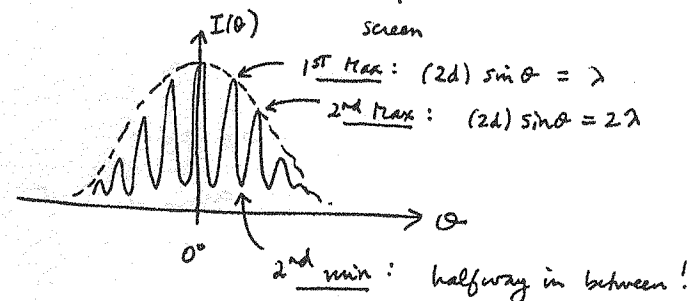 I(θ)
screen
1ST Max : (2d) sin θ = λ
2nd Max : (2d) sinθ = 2λ
θ
0°
2nd min : halfway in between !